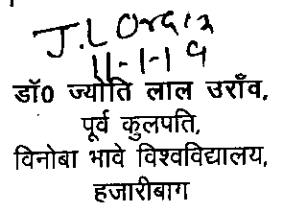 J. L Oraon
11-1-19
डॉ0 ज्योति लाल उराँव,
पूर्व कुलपति,
विनोबा भावे विश्वविद्यालय,
हजारीबाग